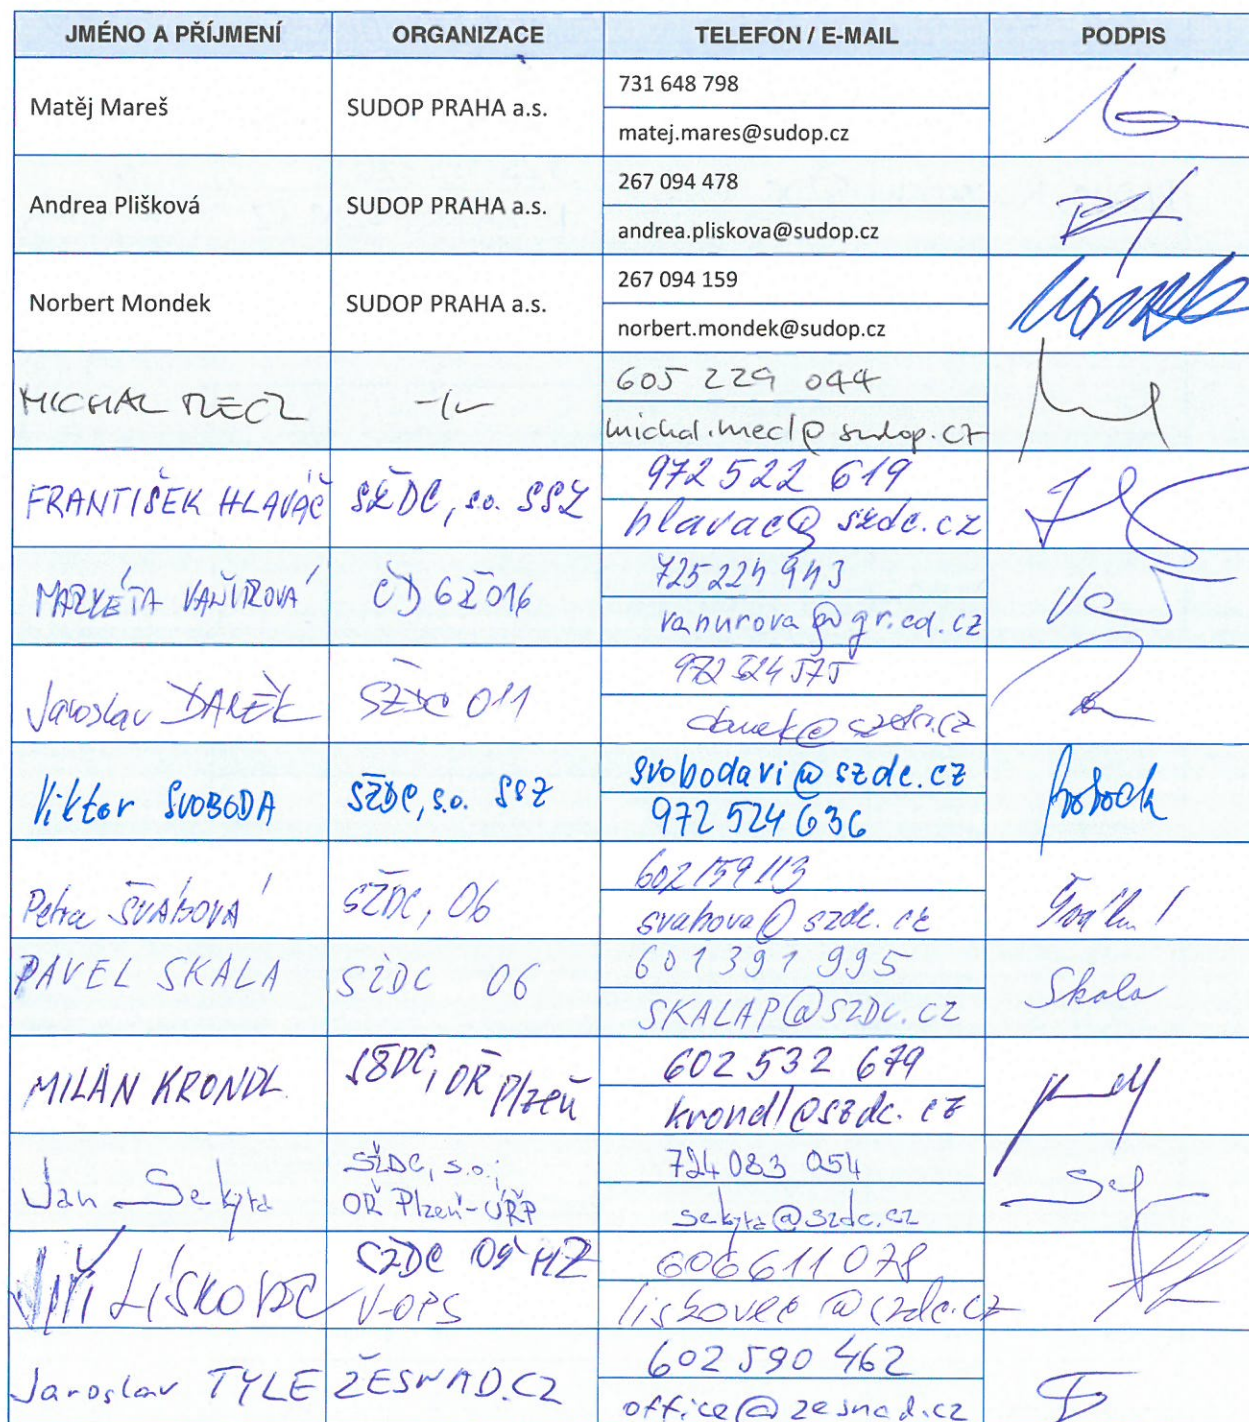 JMÉNO A PŘÍJMENÍ ORGANIZACE TELEFON / E-MAIL PODPIS
Matěj Mareš SUDOP PRAHA a.s. 731 648 798
matej.mares@sudop.cz
Andrea Plišková SUDOP PRAHA a.s. 267 094 478
andrea.pliskova@sudop.cz
Norbert Mondek SUDOP PRAHA a.s. 267 094 159
norbert.mondek@sudop.cz
MICHAL MECL -||- 605 229 044
michal.mecl@sudop.cz
FRANTIŠEK HLAVÁČ SŽDC, s.o. SSZ 972 522 619
hlavac@szdc.cz
MARKÉTA VAŇUROVÁ ČD GŘ 016 725 224 943
vanurova@gr.cd.cz
Jaroslav SŽDC 011 972 524 575
Viktor SVOBODA SŽDC, s.o. SSZ svobodavi@szdc.cz
972 524 636 Svoboda
Petra ŠVÁBOVÁ SŽDC, 06 602 159 113
svabova@szdc.cz
PAVEL SKALA SŽDC 06 601 391 995
SKALAP@SZDC.CZ Skala
MILAN KRONDL SŽDC, OŘ Plzeň 602 532 679
krondl@szdc.cz
Jan Sekyra SŽDC, s.o., 724 083 054
OŘ Plzeň-ÚŘP sekyra@szdc.cz
JIŘÍ LÍSKOVEC SŽDC 606 611 078
V-OPS liskovec@szdc.cz
Jaroslav TYLE ŽESNAD.CZ 602 590 462
office@zesnad.cz